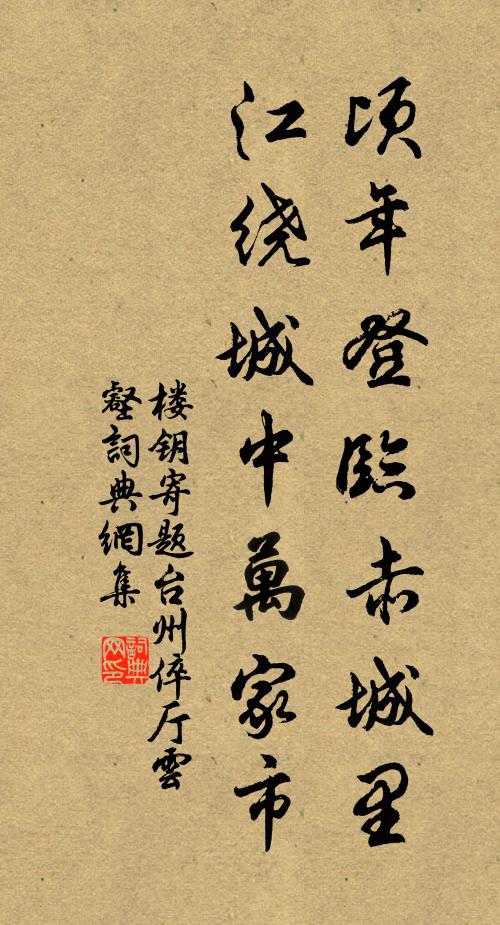 頃年登臨赤城里
江绕城中萬家市
楼钥寄题台州倅厅雲
壑詞典網集
詞典
网印